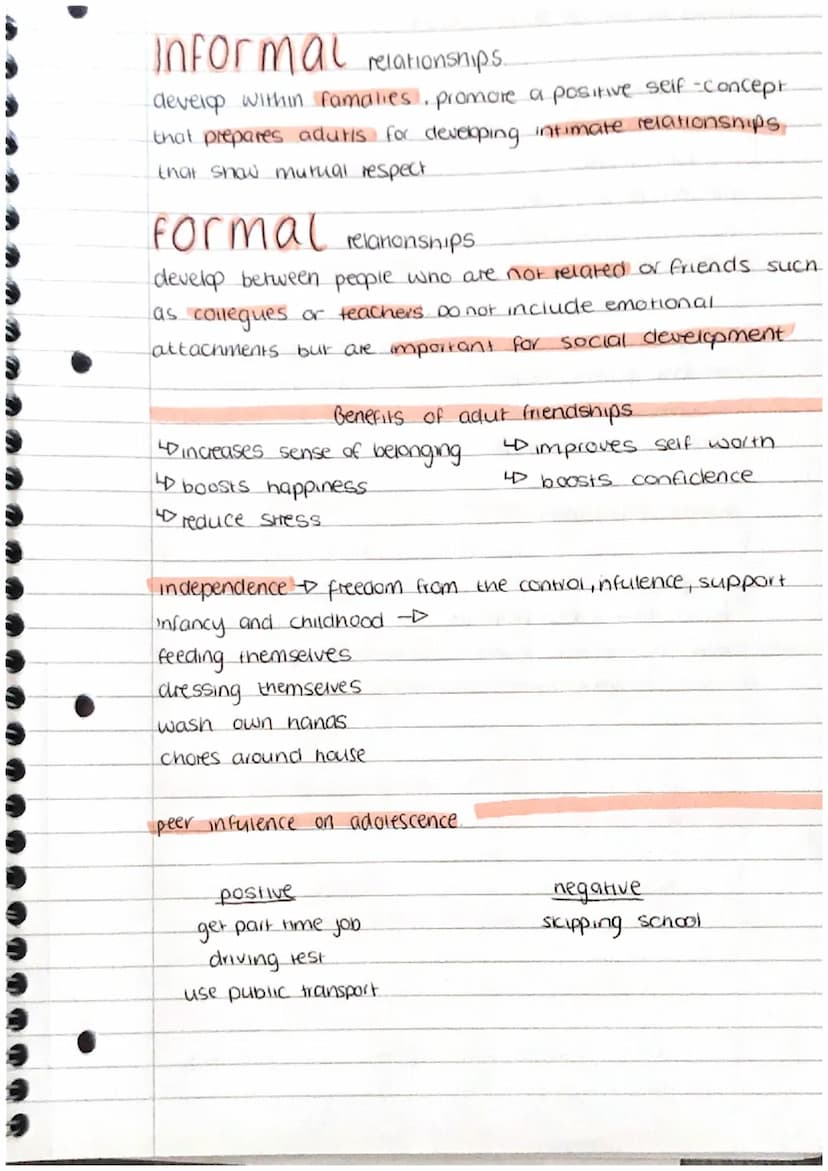 INFORMAL relationships.
develop within famalies, promore a positive self-concept
that prepares adults for developing intimate relationships
that show mutual respect
FORMAL relationships
develop between people who are not related or friends such
as collegues or teachers Do not include emotional
attachments but are important for social development
Benefits of adult friendships
↳ increases sense of belonging ↳ improves self worth
↳ boosts happiness ↳ boosts confidence
↳ reduce stress
independence → freedom from the control, infulence, support
infancy and childhood →
feeding themselves
dressing themselves
wash own hands
chores around house
peer infulence on adolescence.
postive negative
get part time job skipping school
driving test
use public transport